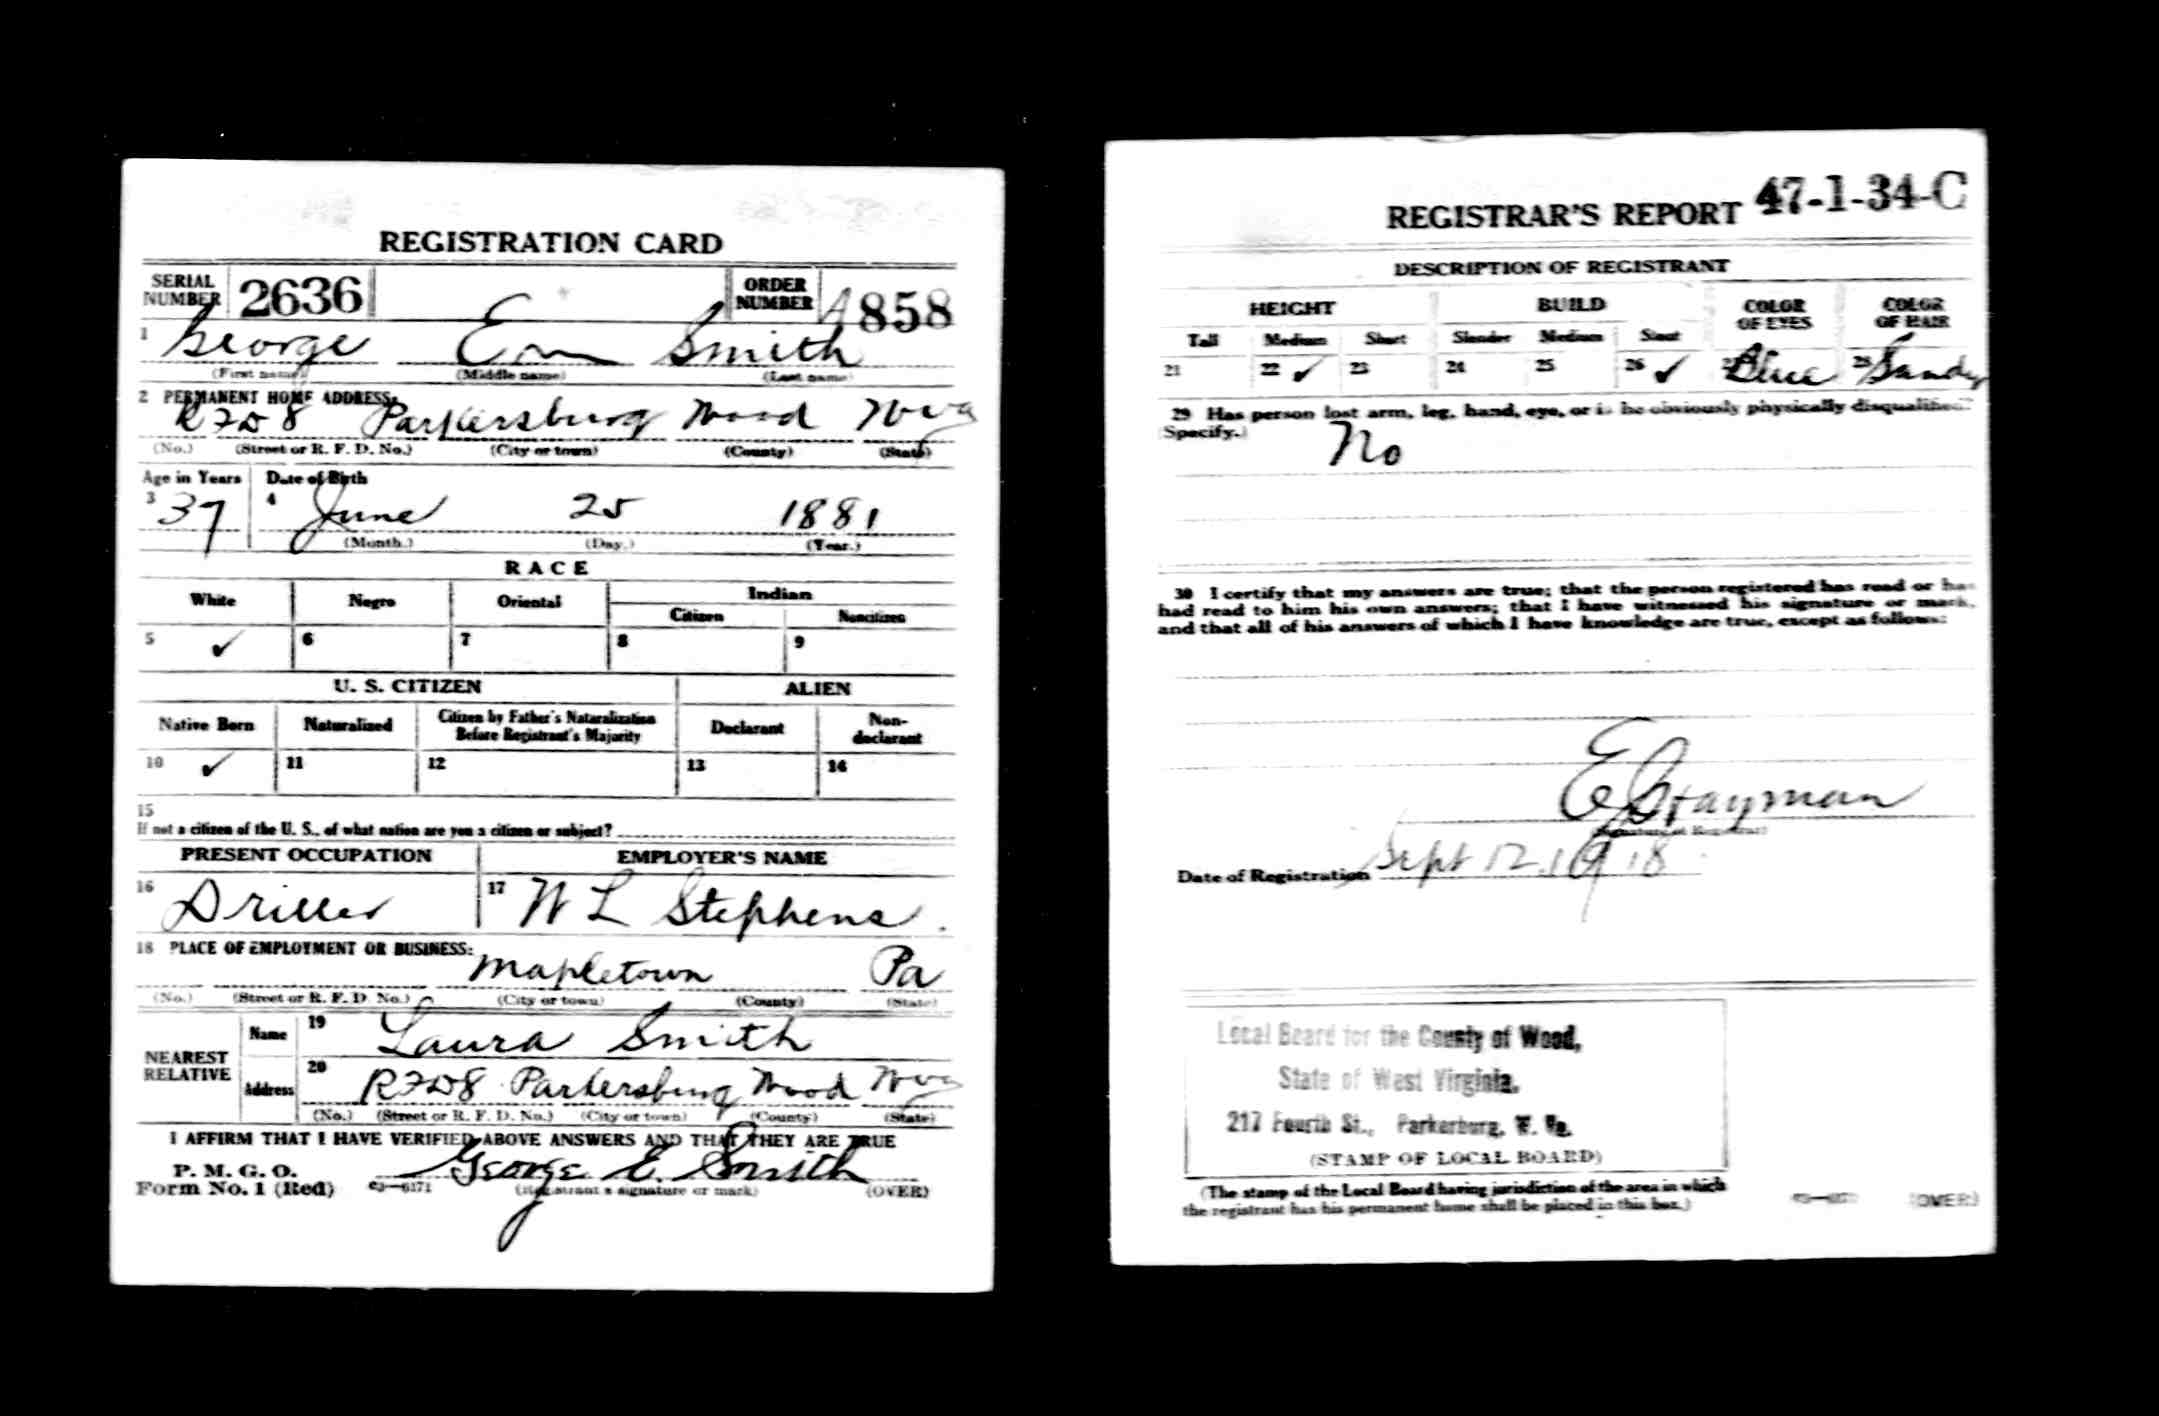 REGISTRATION CARD
SERIAL NUMBER 2636 ORDER NUMBER A858
1 George Em Smith
(First name) (Middle name) (Last name)
2 PERMANENT HOME ADDRESS:
RFD 8 Parkersburg Wood Wva
(No.) (Street or R. F. D. No.) (City or town) (County) (State)
Age in Years Date of Birth
3 37 4 June 25 1881
(Month.) (Day.) (Year.)
RACE
White Negro Oriental Indian
Citizen Noncitizen
5 ✓ 6 7 8 9
U. S. CITIZEN ALIEN
Native Born Naturalized Citizen by Father's Naturalization Before Registrant's Majority Declarant Non-declarant
10 ✓ 11 12 13 14
15
If not a citizen of the U. S., of what nation are you a citizen or subject?
PRESENT OCCUPATION EMPLOYER'S NAME
16 Driller 17 W L Stephens.
18 PLACE OF EMPLOYMENT OR BUSINESS:
Mapletown Pa
(No.) (Street or R. F. D. No.) (City or town) (County) (State)
NEAREST RELATIVE
Name 19 Laura Smith
Address 20 RFD8 Parkersburg Wood Wva
(No.) (Street or R. F. D. No.) (City or town) (County) (State)
I AFFIRM THAT I HAVE VERIFIED ABOVE ANSWERS AND THAT THEY ARE TRUE
P. M. G. O.
Form No. 1 (Red) 03—6171 George E. Smith
(Registrant's signature or mark) (OVER)
REGISTRAR'S REPORT 47-1-34-C
DESCRIPTION OF REGISTRANT
HEIGHT BUILD COLOR OF EYES COLOR OF HAIR
Tall Medium Short Slender Medium Stout
21 22 ✓ 23 24 25 26 ✓ 27 Blue 28 Sandy
29 Has person lost arm, leg, hand, eye, or is he obviously physically disqualified?
(Specify.) No
30 I certify that my answers are true; that the person registered has read or has
had read to him his own answers; that I have witnessed his signature or mark,
and that all of his answers of which I have knowledge are true, except as follows:
(Signature of Registrar)
Date of Registration Sept 12. 1918
Local Board for the County of Wood,
State of West Virginia,
217 Fourth St., Parkerburg, W. Va.
(STAMP OF LOCAL BOARD)
(The stamp of the Local Board having jurisdiction of the area in which
the registrant has his permanent home shall be placed in this box.)
(OVER)